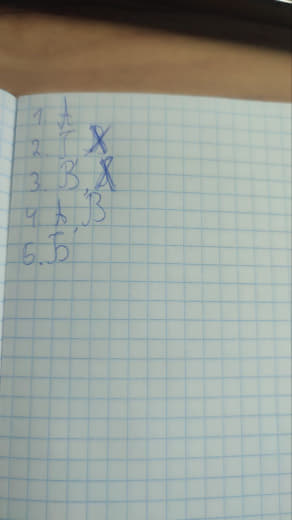 1. А
2. Г
3. В,
4. А, В
5. Б